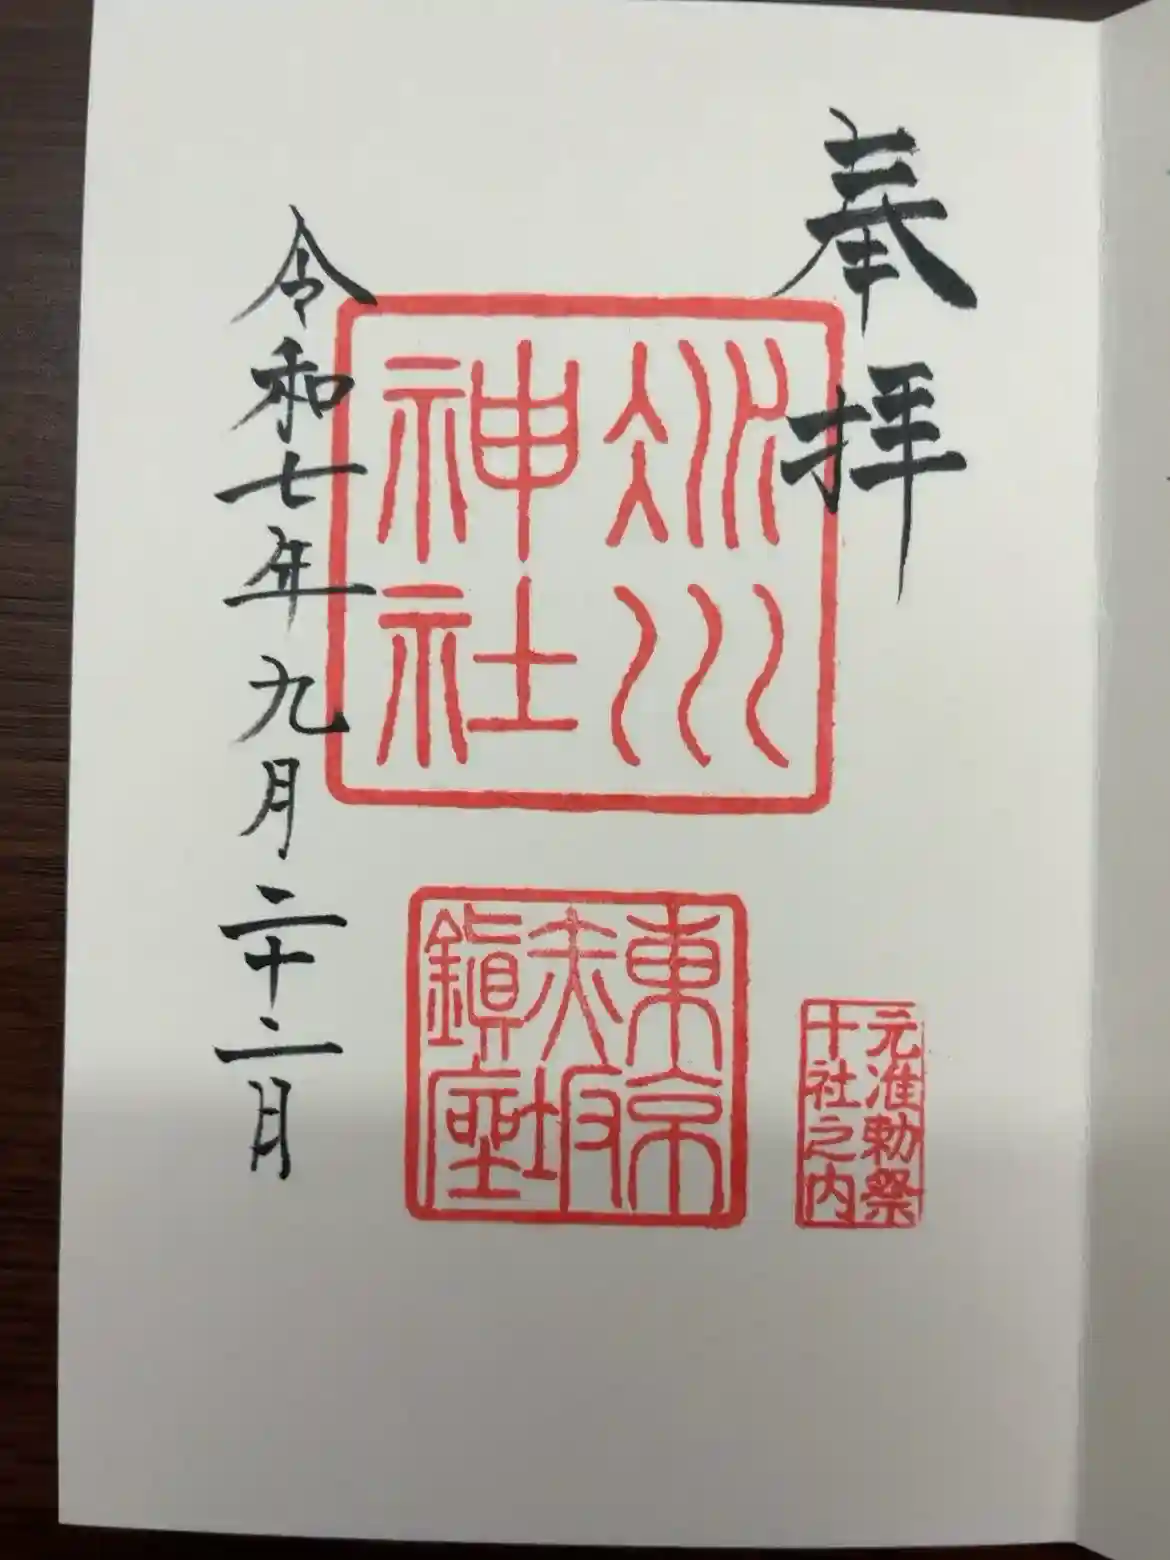 奉拝
氷川
神社
元准勅祭
十社之内
東京
赤坂
鎮座
令和七年九月二十二日